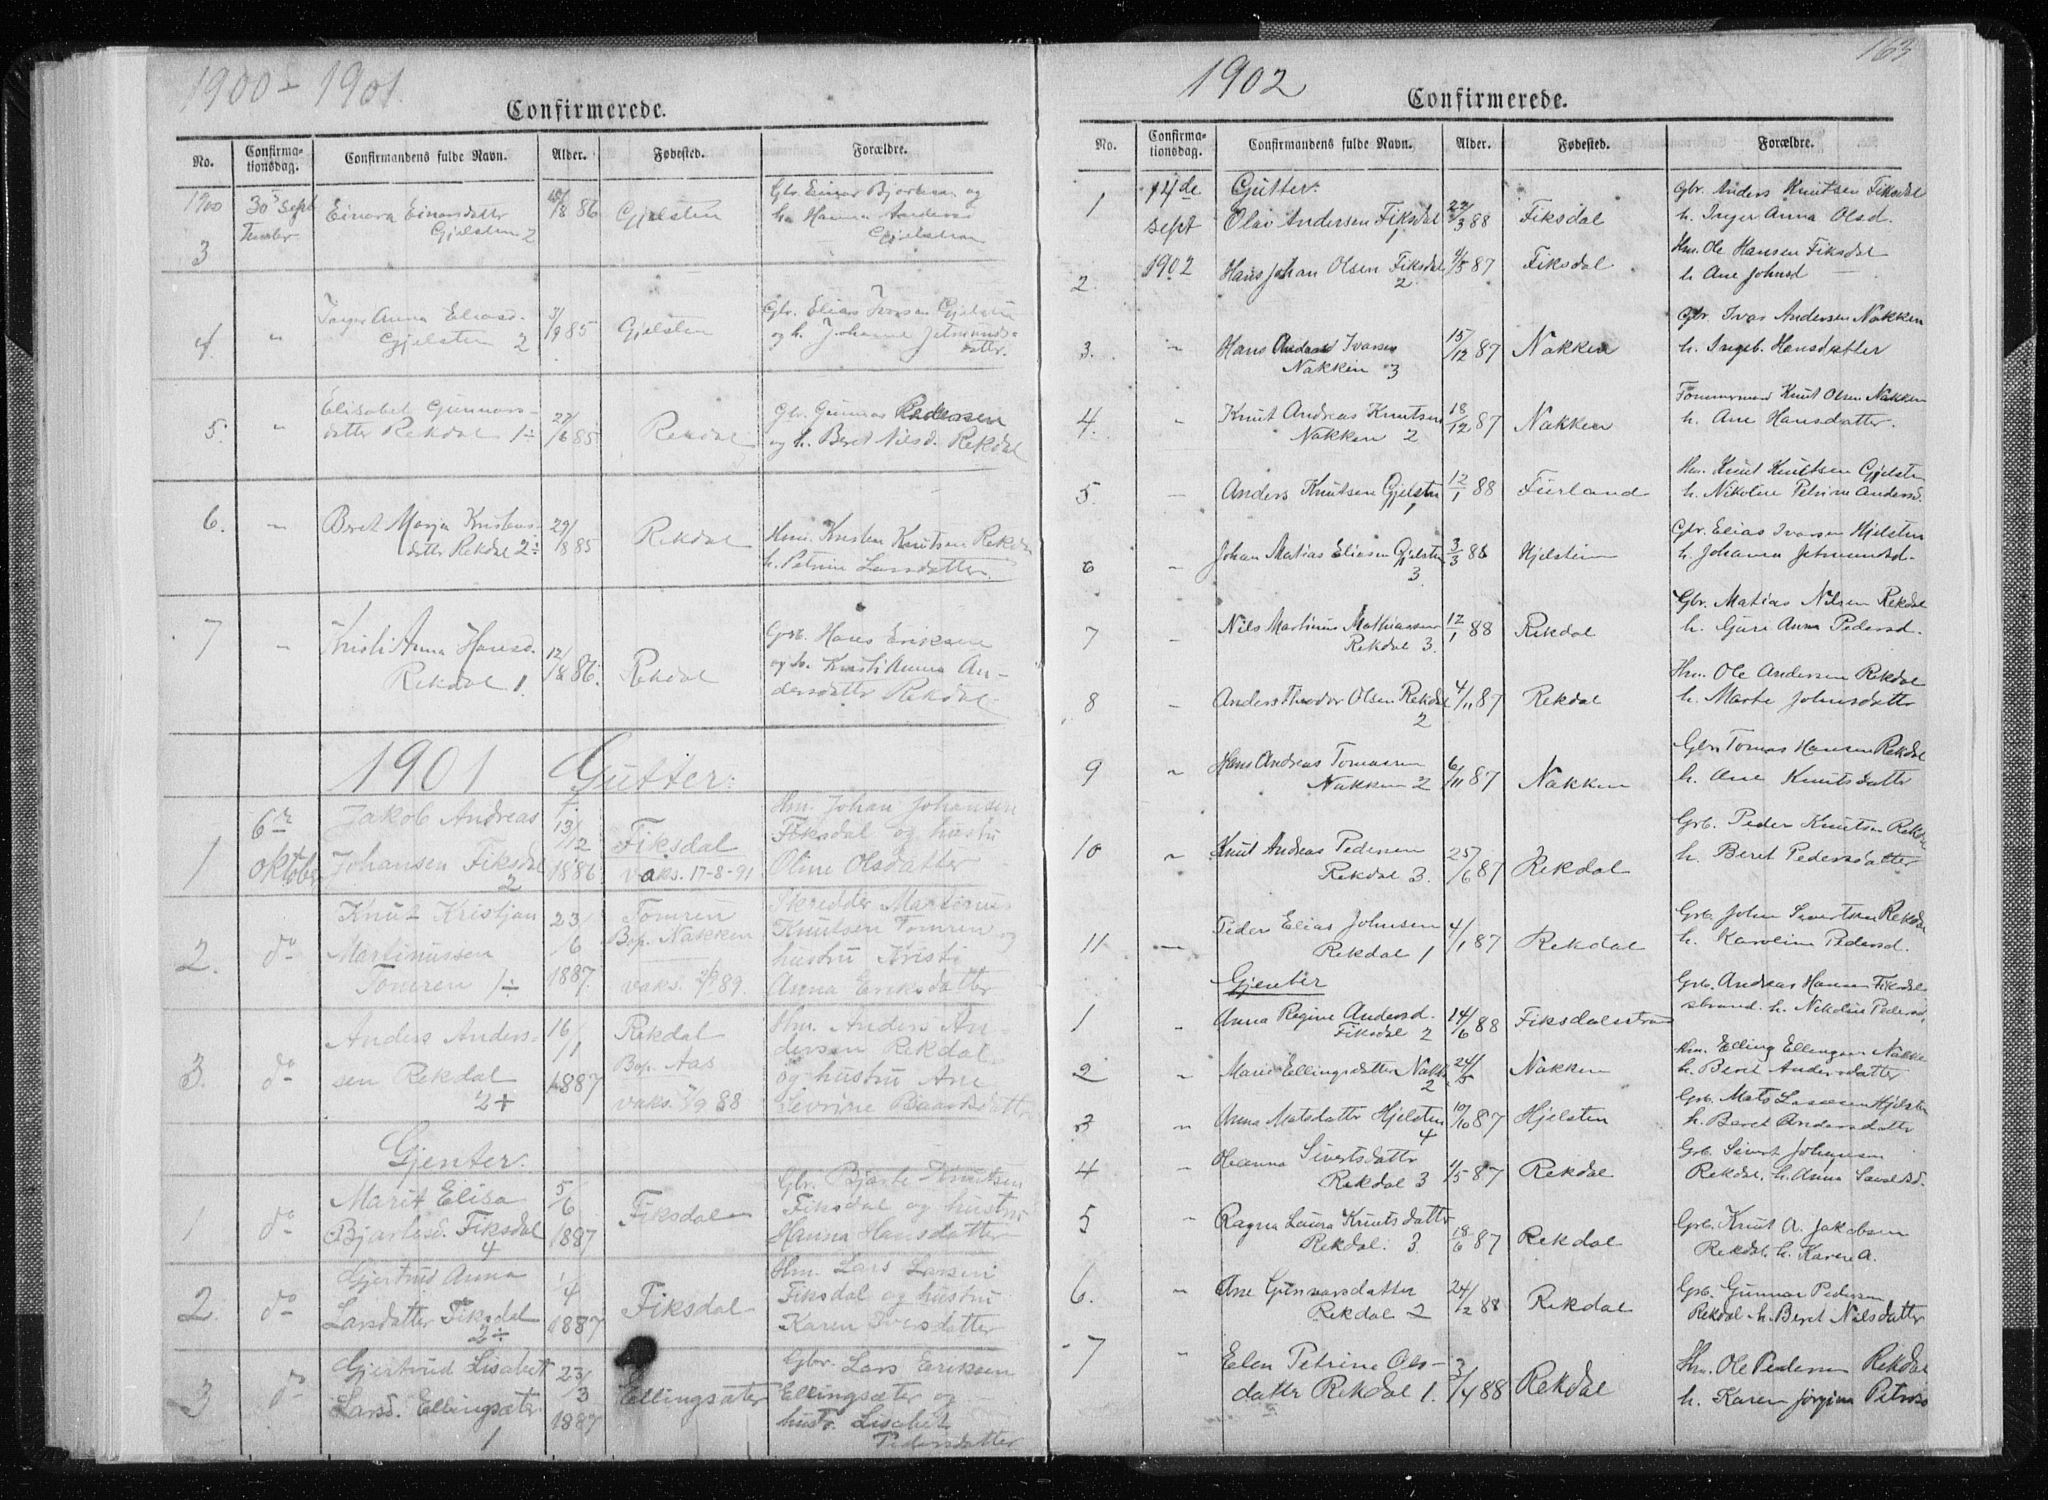 1900 - 1901.
Confirmerede.
No. Confirmationsdag. Confirmandens fulde Navn. Alder. Fødested. Forældre.
1900 30' Sept Einara Einarsdatter 86 Gjelsten Gbr. Einar
Gjelsten 2 h. Hanna
3
4 " Inger Anna Eliasd. 85 Gjelsten Gbr. Elias Ivarsen Gjelsten
Gjelsten 2 og h. Johanne Jetmunds-
datter.
5. " Elisabet Gunnars- 27/6 85 Rekdal Gbr. Gunnar Pedersen
datter Rekdal 1÷ og h. Beret Nilsd. Rekdal
6. " Beret Marja Kristens- 29/8 85 Rekdal Hm. Kristen Knutsen Rekdal
datter Rekdal 2÷ h. Petrine Larsdatter.
7 " Kristi Anna Hansd. 12/8 86. Rekdal Grb. Hans Eriksen
Rekdal 1. og h. Kristi Anna An-
dersdatter Rekdal
1901 Gutter:
1 6te oktober Jakob Andreas 13/12 1886 Fiksdal Hm. Johan Johansen
Johansen Fiksdal vaks. 17-8-91 Fiksdal og hustru
2 Oline Olsdatter
2. do Knut Kristjan 23/6 1887. Tomren Skredder Martinus
Martinussen Bop. Nakken Knutsen Tomren og
Tomren 1÷ vaks. 89. hustru Kristi
Anna Eriksdatter
3. do Anders Anders- 16/11 1887 Rekdal Hm. Anders An-
sen Rekdal Bop. Aas dersen Rekdal
2+ vaks. 88 og hustru Ane
Sevrine Baardsdatter
Gjenter.
1 do Marit Elisa 5/6 1887 Fiksdal Gbr. Bjarte Knutsen
Bjartesd. Fiksdal Fiksdal og hustru
4 Hanna Hansdatter
2. do Gjertrud Anna 1/4 1887 Fiksdal Hm. Lars Larsen
Larsdatter Fiksdal Fiksdal og hustru
2÷ Karen Iversdatter
3 do Gjertrud Lisabet 23/3 1887 Ellingsæter Gbr. Lars Eriksen
Larsd. Ellingsæter Ellingsæter og
1 hustr. Lisabet
Pedersdatter
163
1902
Confirmerede.
No. Confirmationsdag. Confirmandens fulde Navn. Alder. Fødested. Forældre.
14de Gutter:
1 sept Olav Andersen Fiksdal 22/3 88 Fiksdal Gbr. Anders Knutsen Fiksdal
1 h. Inger Anna Olsd.
2. 1902 Hans Johan Olsen Fiksdal 9/5 87 Fiksdal Hm. Ole Hansen Fiksdal
2. h. Ane Johnsd
3. " Hans Ivarsen 15/12 87 Nakken Gbr. Ivar Andersen Nakken
Nakken 3 h. Ingeb. Hansdatter
4. " Knut Andreas Knutsen 18/12 87 Nakken Tømmermand Knut Olsen Nakken
Nakken 2 h. Ane Hansdatter.
5. " Anders Knutsen Gjelsten 12/1 88 Furland Hm. Knut Knutsen Gjelsten
1 h. Nikoline Petrine Andersd.
6 " Johan Matias Eliasen Gjelsten 3/3 88 Hjelsten Gbr. Elias Ivarsen Hjelsten
3. h. Johanna Jetmundsd.
7 " Nils Martinus Mathiassen 12/1 88 Rekdal Gbr. Matias Nilsen Rekdal
Rekdal 3. h. Guri Anna Pedersd.
8 " Anders Theodor Olsen Rekdal 4/11 87 Rekdal Hm. Ole Andersen Rekdal
2 h. Marte Johnsdatter
9 " Hans Andreas Tomassen 6/11 87 Nakken Gbr. Tomas Hansen Rekdal
Nakken 2 h. Ane Knutsdatter
10 " Knut Andreas Pedersen 25/6 87 Rekdal Grb. Peder Knutsen Rekdal
Rekdal 3. h. Beret Pedersdatter
11 " Peder Elias Johnsen 4/1 87 Rekdal Grb. John Sivertsen Rekdal
Rekdal 1 h. Karoline Pedersd.
Gjenter
1 " Anna Regine Andersd. 14/6 88 Fiksdalstrand Grb. Andreas Hansen Fiksdal
Fiksdal 2 strand. h. Nikoline Pedersd.
2 " Marie Ellingsdatter Nakken 24/5 Nakken Hm. Elling Ellingsen Nakken
2 h. Beret Andersdatter
3 " Anna Matsdatter Hjelsten 10/10 87 Hjelsten Grb. Mats Larsen Hjelsten
4 h. Beret Andersdatter
4 " Sivertsdatter 1/5 87 Rekdal Grb. Sivert Johansen
Rekdal 3 Rekdal, h. Anna
5 " Ragna Laura Knutsdatter 18/6 87 Rekdal Grb. Knut A. Jakobsen
Rekdal. 3 Rekdal, h. Karen A.
6. " Ane Gunnarsdatter 24/2 88 Rekdal Grb. Gunnar Pedersen
Rekdal 2 Rekdal h. Beret Nilsdatter
7 " Elen Petrine Ols- 88 Rekdal Hm. Ole Pedersen Rekdal
datter Rekdal 1. h. Karen Jørgina